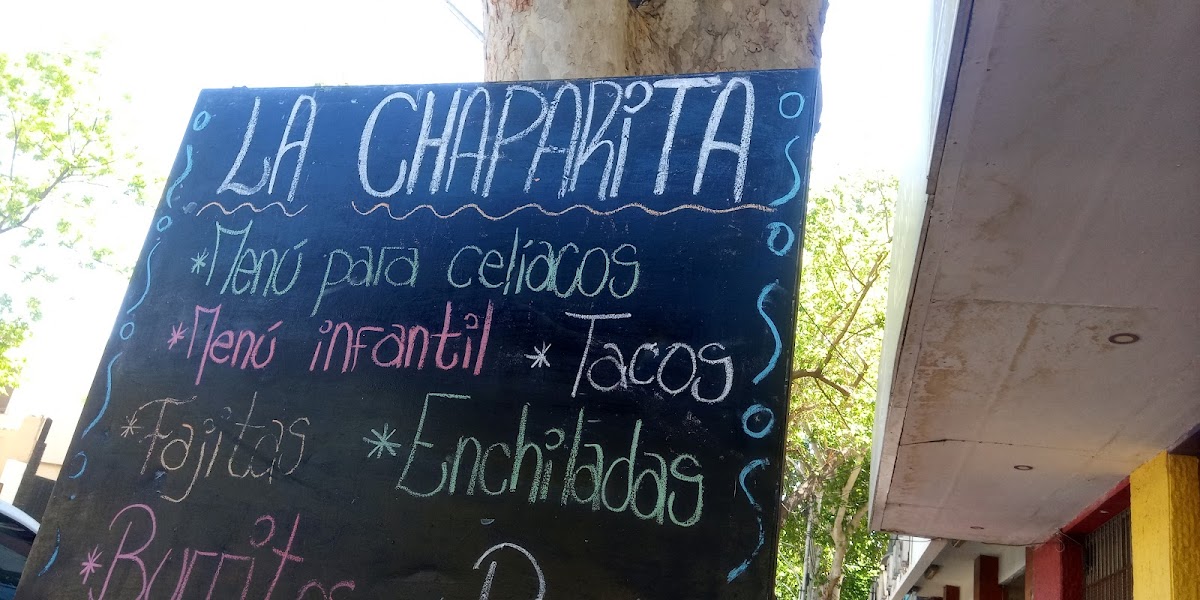 LA CHAPARiTA
*Menú para celíacos
*Menú infantil *Tacos
*Fajitas *Enchiladas
*Burritos